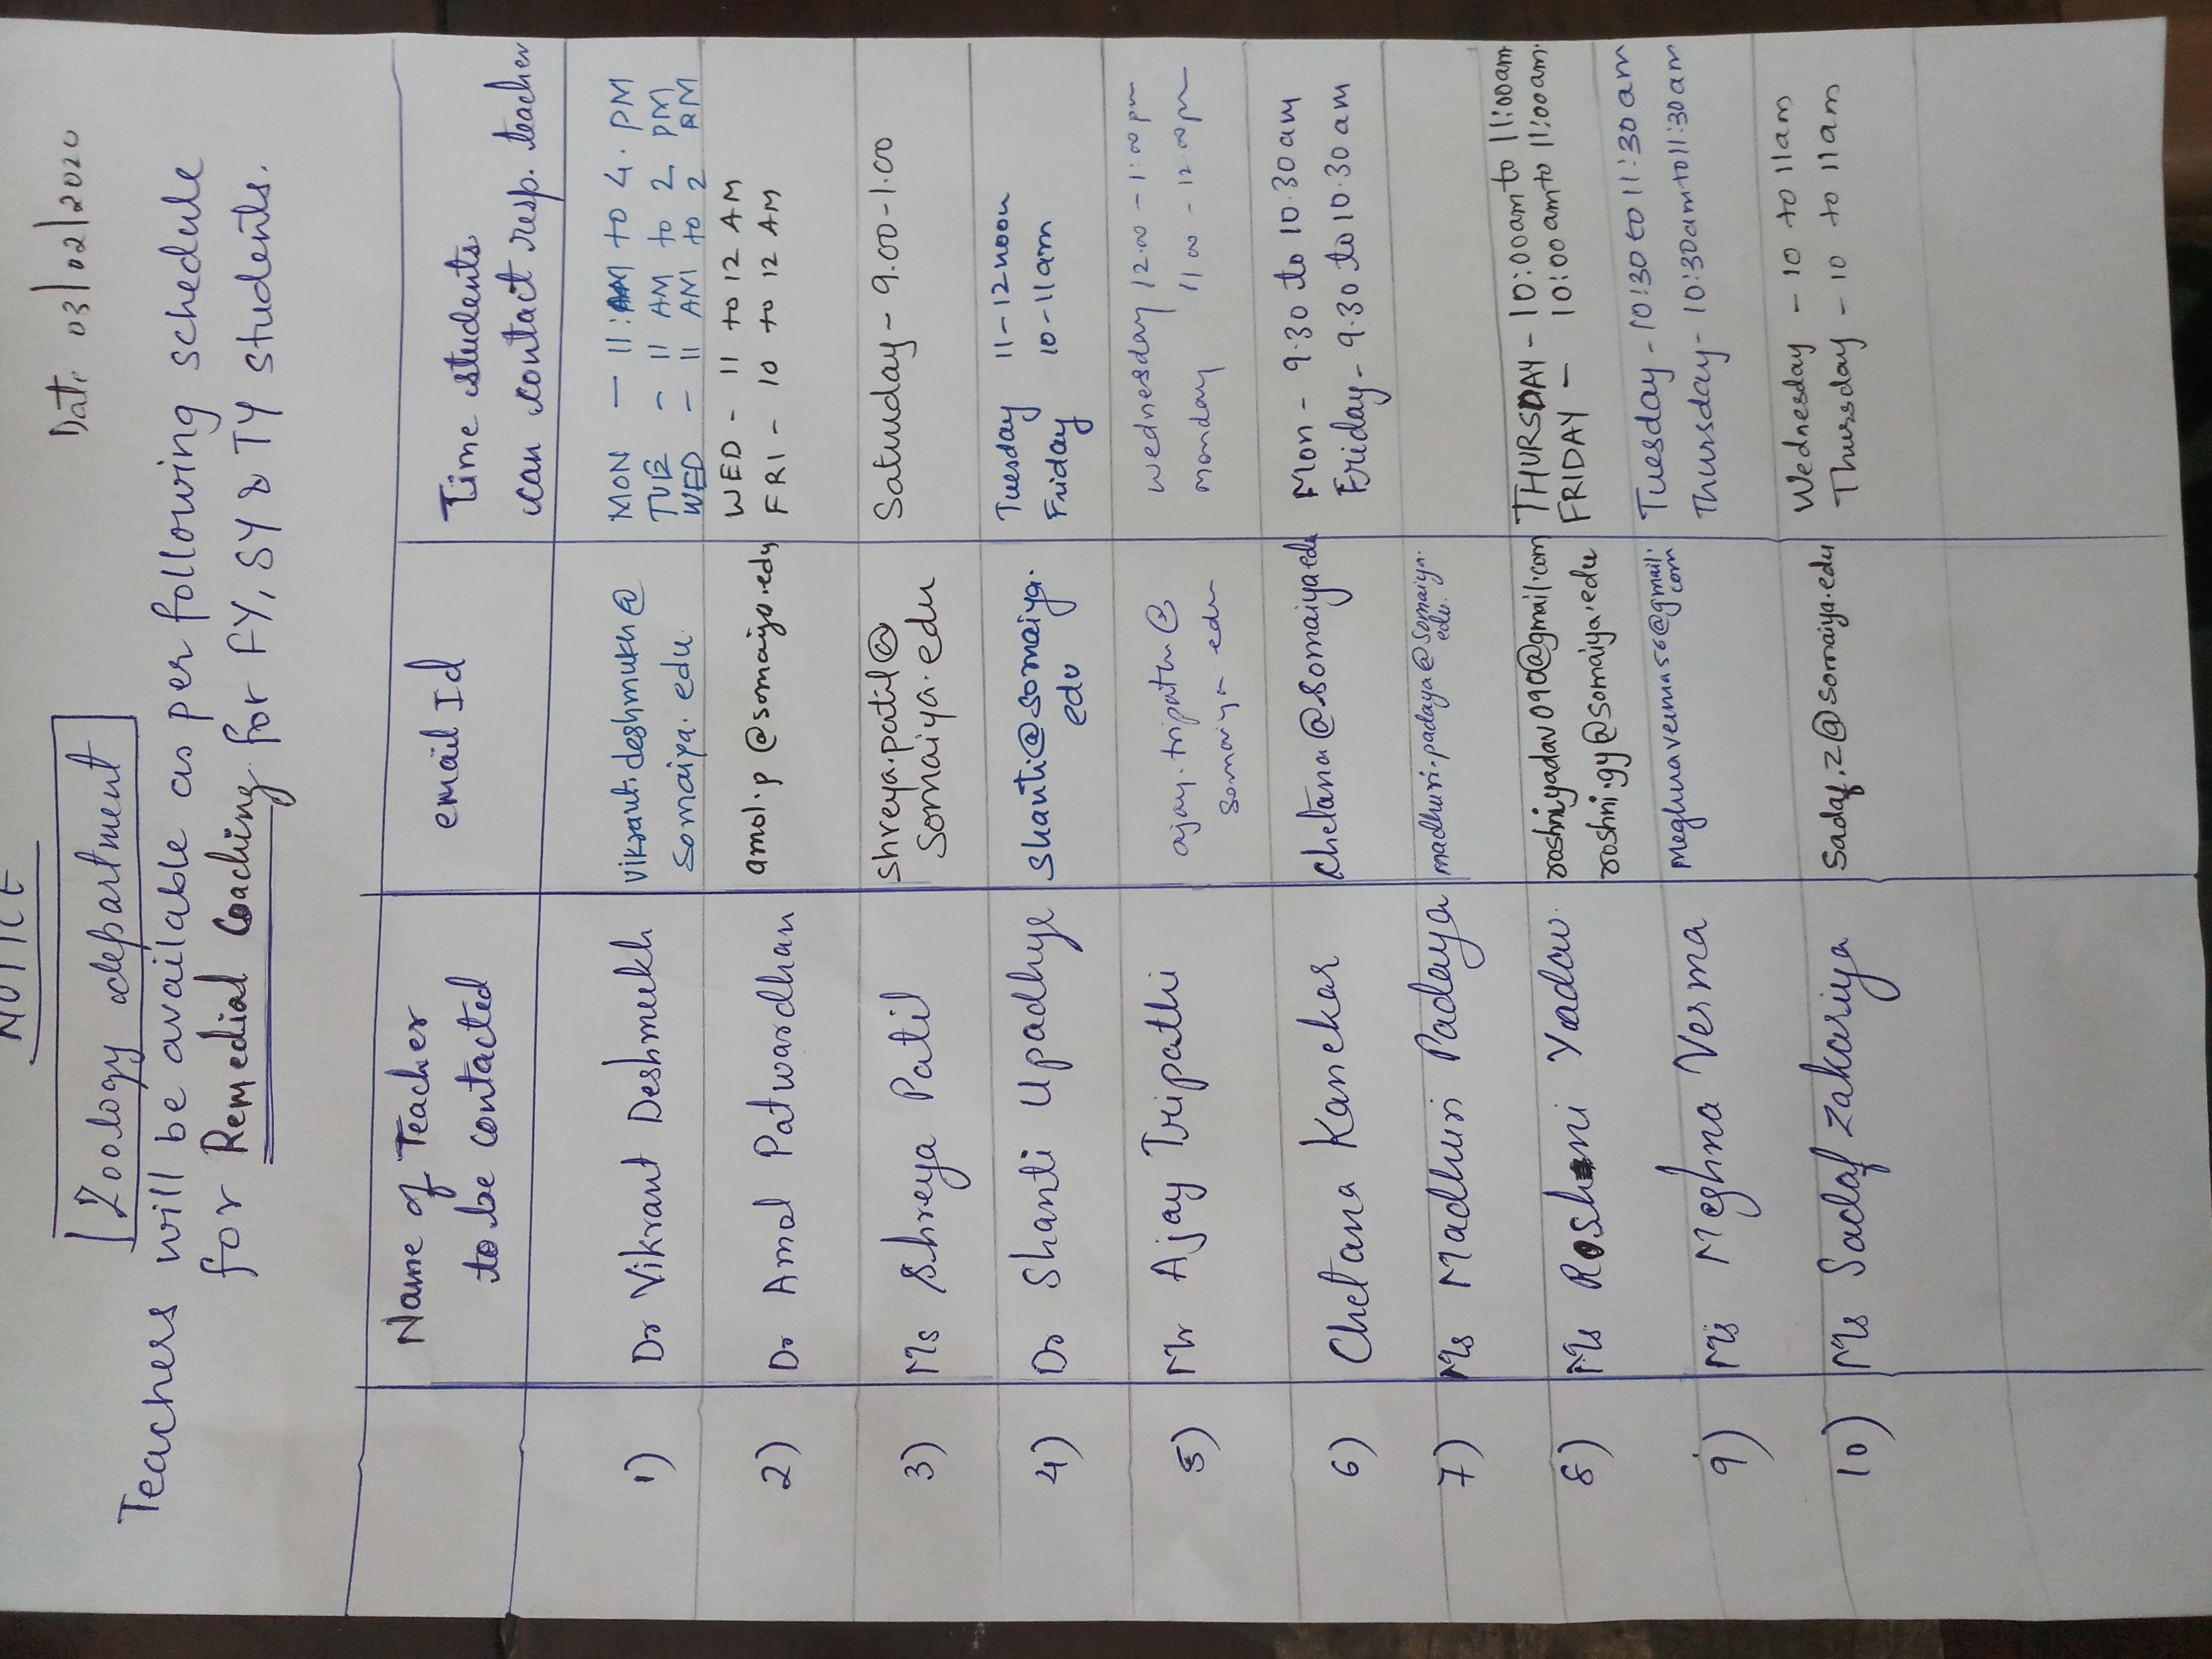 NOTICE
Date 03/02/2020
Zoology department
Teachers will be available as per following schedule
for Remedial Coaching for FY, SY & TY students.
Name of Teacher to be contacted
email Id
Time students can contact resp. teacher
1) Dr Vikrant Deshmukh
vikrant.deshmukh@
somaiya.edu
MON - 11 AM to 4. PM
TUE - 11 AM to 2 PM
WED - 11 AM to 2 PM
2) Dr Amol Patwardhan
amol.p@somaiya.edu
WED - 11 to 12 AM
FRI - 10 to 12 AM
3) Ms Shreya Patil
shreya.patil@
somaiya.edu
Saturday - 9.00-1.00
4) Dr Shanti Upadhye
shanti@somaiya.
edu
Tuesday 11-12noon
Friday 10-11am
5) Mr Ajay Tripathi
ajay.tripathi@
somaiya.edu
Wednesday 12.00 - 1:00pm
Monday 11.00 - 12.00pm
6) Chetana Kanekar
chetana@somaiya.edu
Mon - 9.30 to 10.30am
Friday - 9.30 to 10.30am
7) Ms Madhuri Padaya
madhuri.padaya@somaiya.
edu.
8) Ms Roshni Yadav
roshniyadav090@gmail.com
roshni.gy@somaiya.edu
THURSDAY - 10:00am to 11:00am
FRIDAY - 10:00am to 11:00am.
9) Ms Meghna Verma
meghnaverma56@gmail.
com
Tuesday - 10:30 to 11:30am
Thursday - 10:30am to 11:30am
10) Ms Sadaf Zakariya
Sadaf.z@somaiya.edu
Wednesday - 10 to 11am
Thursday - 10 to 11am